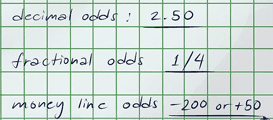 decimal odds : 2.50
fractional odds 1/4
money line odds -200 or +50